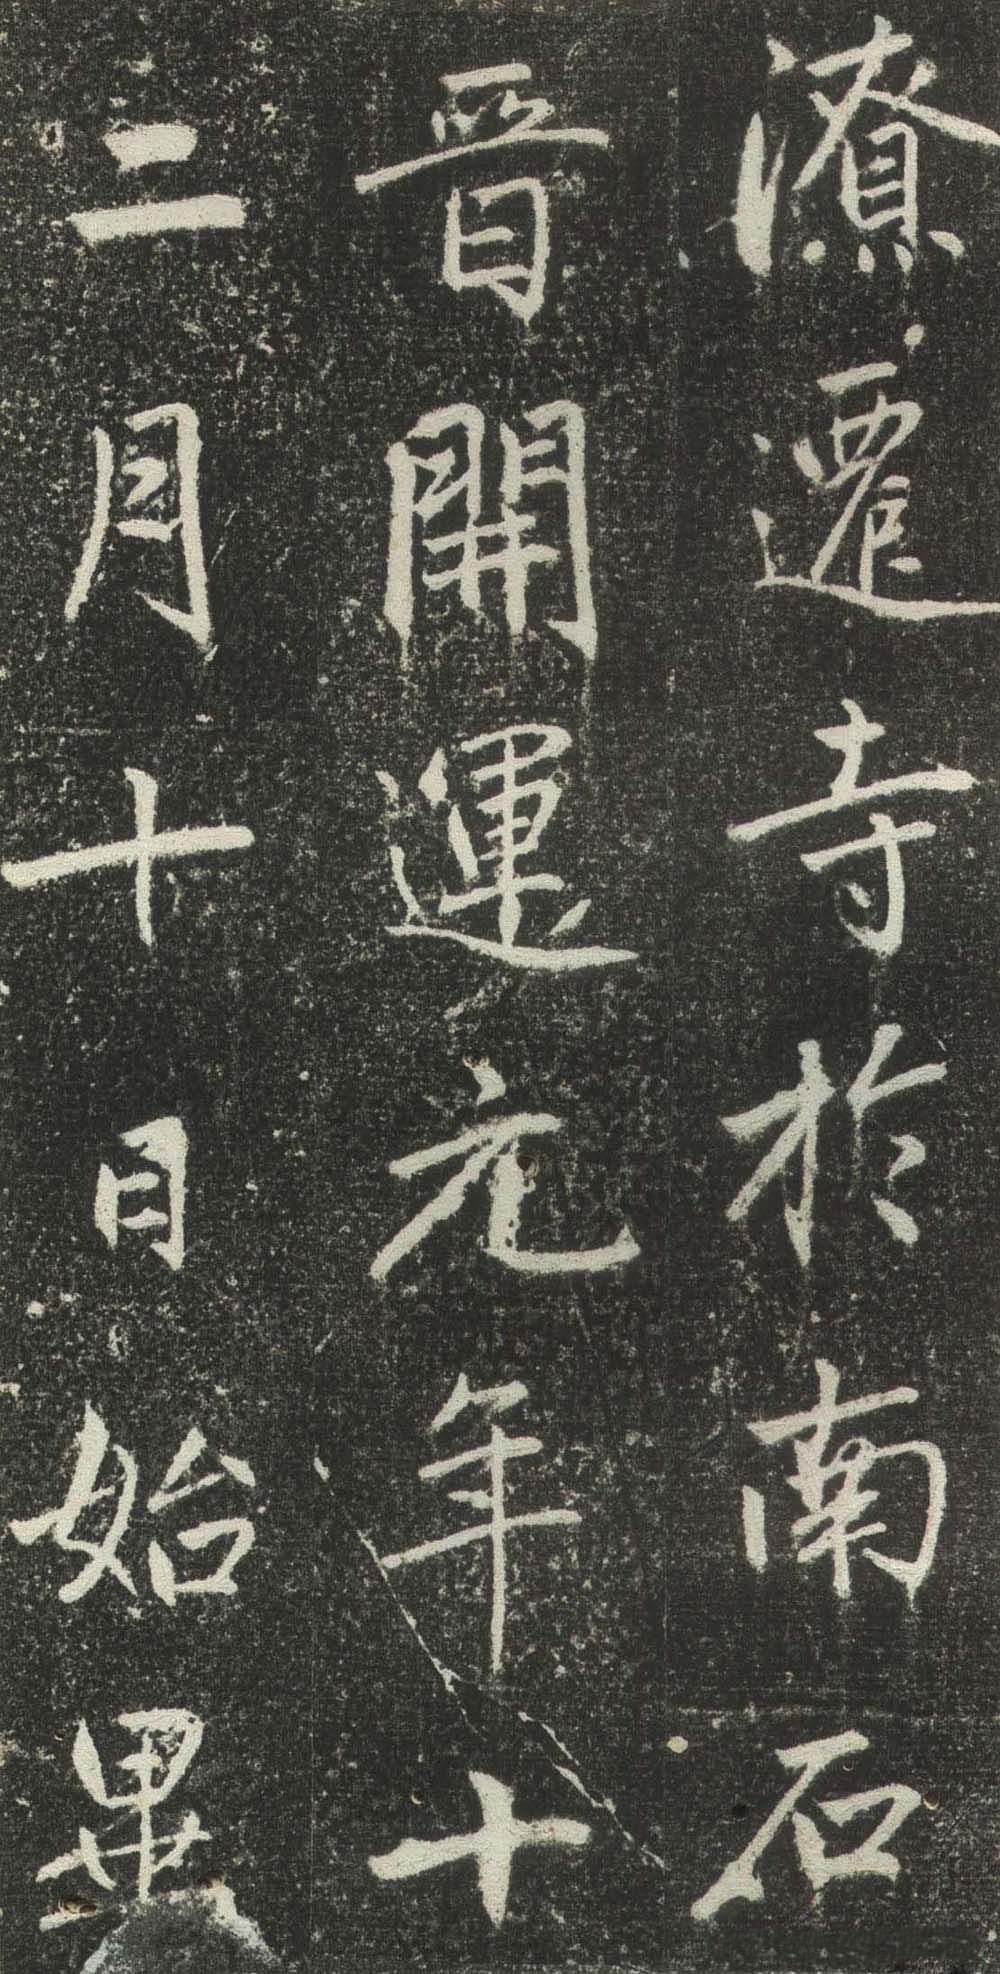 潦遷寺於南石
晉開運元年十
二月十日始畢